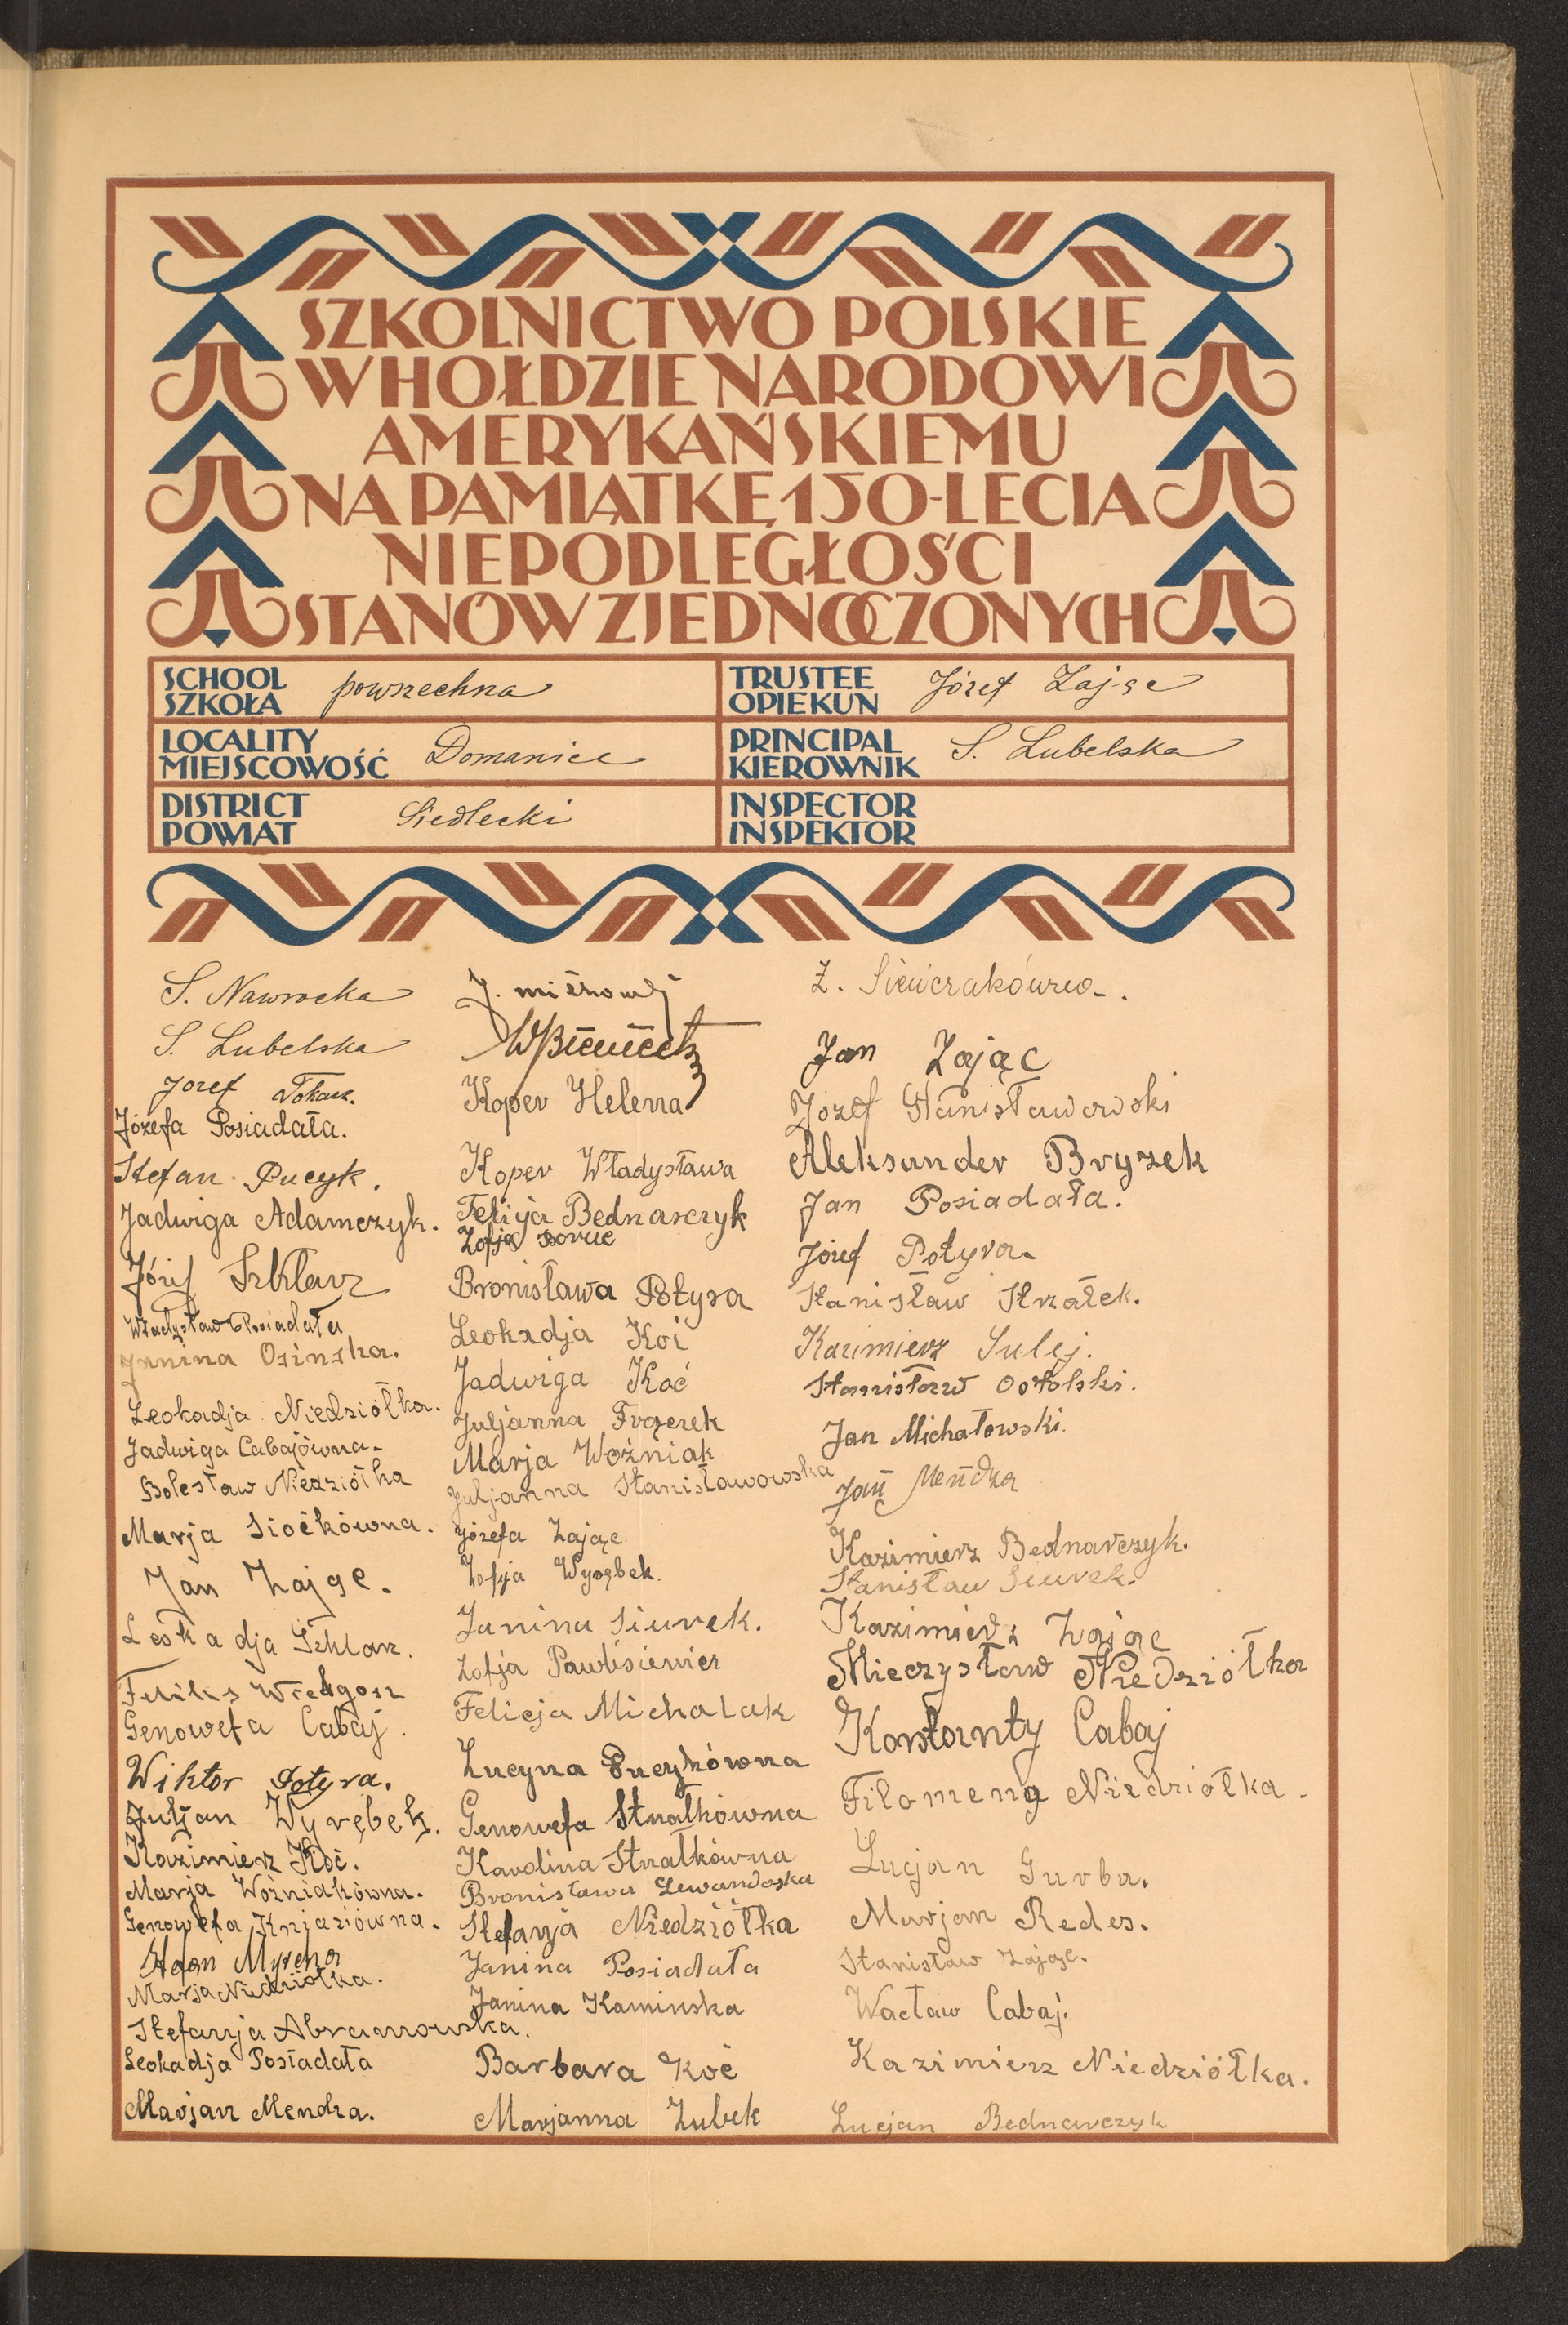 SZKOLNICTWO POLSKIE
W HOŁDZIE NARODOWI
AMERYKAŃSKIEMU
NA PAMIĄTKĘ 150-LECIA
NIEPODLEGŁOŚCI
STANÓW ZJEDNOCZONYCH
SCHOOL
SZKOŁA powszechna
TRUSTEE
OPIEKUN Józef Zając
LOCALITY
MIEJSCOWOŚĆ Domanice
PRINCIPAL
KIEROWNIK S. Lubelska
DISTRICT
POWIAT Siedlecki
INSPECTOR
INSPEKTOR
S. Nawrocka
S. Lubelska
Jozef Tokarz.
Józefa Posiadała.
Stefan Pucyk.
Jadwiga Adamczyk.
Józef Szklarz
Władysław Posiadała
Janina Osinska.
Leokadja Niedziółka.
Jadwiga Cabajówna.
Bolesław Niedziółka
Marja Sioćkówna.
Jan Zając.
Leokadja Szklarz.
Feliks Wielgosz
Genowefa Cabaj.
Wiktor Potyra.
Juljan Wyrębek.
Kazimierz Koć.
Marja Woźniakówna.
Genowefa Kniaziówna.
Marja Niedziółka.
Stefanja Abramowska.
Leokadja Posiadała
Marjan Mendza.
J.
Koper Helena
Koper Władysława
Felicja Bednarczyk
Zofja
Bronisława Potyra
Leokadja Koć
Jadwiga Koć
Juljanna Frączek
Marja Woźniak
Juljanna Stanisławowska
Józefa Zając.
Zofja Wyrębek.
Janina Siurek.
Zofja Pawlisiewicz
Felicja Michalak
Lucyna Pucykówna
Genowefa Strzałkówna
Karolina Strzałkówna
Bronisława Lewandoska
Stefanja Niedziółka
Janina Posiadała
Janina Kaminska
Barbara Koć
Marjanna Zubek
Z.
Jan Zając
Józef Stanisławowski
Aleksander Bryzek
Jan Posiadała.
Józef Potyra.
Stanisław Strzałek.
Kazimierz Sulej.
Stanisław Ostolski.
Jan Michałowski.
Jan Mendza
Kazimierz Bednarczyk.
Stanisław Siurek.
Kazimierz Zając
Mieczysław Niedziółka
Konstanty Cabaj
Filomena Niedziółka.
Lucjan Gurba.
Marjan Redes.
Stanisław Zając.
Wacław Cabaj.
Kazimierz Niedziółka.
Lucjan Bednarczyk